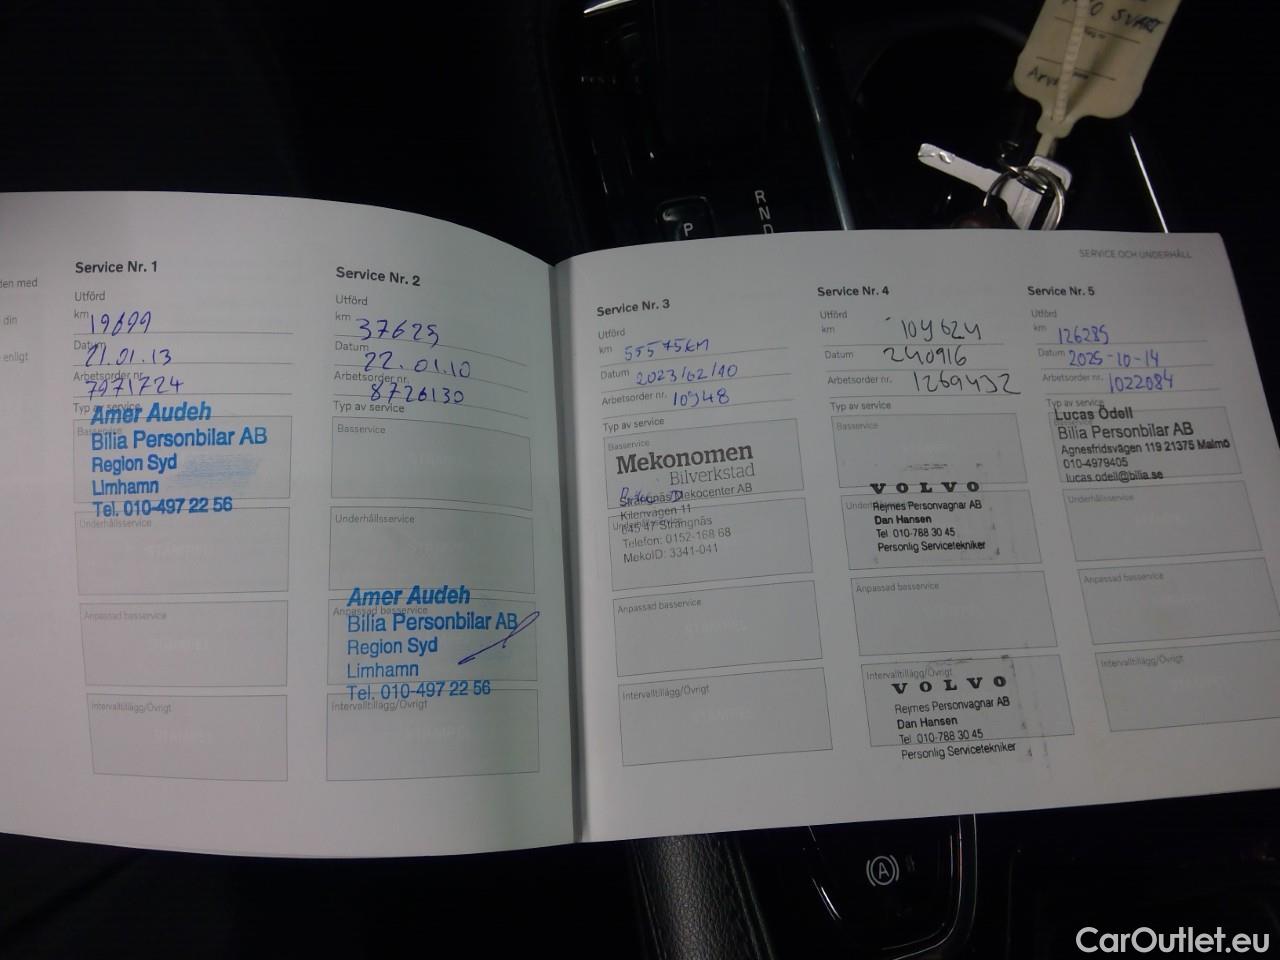 SVART
P
R
N
D
SERVICE OCH UNDERHÅLL
den med
din
enligt
Service Nr. 1
Utförd
km 19699
Datum 21.01.13
Arbetsorder nr. 7971724
Typ av service
Basservice
Amer Audeh
Bilia Personbilar AB
Region Syd
Limhamn
Tel. 010-497 22 56
Underhållsservice
STÄMPEL
Anpassad basservice
STÄMPEL
Intervalltillägg/Övrigt
STÄMPEL
Service Nr. 2
Utförd
km 37625
Datum 22.01.10
Arbetsorder nr. 8726130
Typ av service
Basservice
Underhållsservice
STÄMPEL
Anpassad basservice
Amer Audeh
Bilia Personbilar AB
Region Syd
Limhamn
Tel. 010-497 22 56
Intervalltillägg/Övrigt
STÄMPEL
Service Nr. 3
Utförd
km 55575KM
Datum 2023/02/10
Arbetsorder nr. 10948
Typ av service
Basservice
Mekonomen
Bilverkstad
Strängnäs Mekocenter AB
Kilenvägen 11
645 47 Strängnäs
Telefon: 0152-168 68
MekoID: 3341-041
Underhållsservice
Anpassad basservice
STÄMPEL
Intervalltillägg/Övrigt
STÄMPEL
Service Nr. 4
Utförd
km 109624
Datum 240916
Arbetsorder nr. 1269432
Typ av service
Basservice
Underhållsservice
VOLVO
Rejmes Personvagnar AB
Dan Hansen
Tel 010-788 30 45
Personlig Servicetekniker
Anpassad basservice
Intervalltillägg/Övrigt
VOLVO
Rejmes Personvagnar AB
Dan Hansen
Tel 010-788 30 45
Personlig Servicetekniker
Service Nr. 5
Utförd
km 126285
Datum 2025-10-14
Arbetsorder nr. 1022084
Typ av service
Basservice
Lucas Ödell
Bilia Personbilar AB
Agnesfridsvägen 119 21375 Malmö
010-4979405
lucas.odell@bilia.se
Underhållsservice
Anpassad basservice
Intervalltillägg/Övrigt
(A)
CarOutlet.eu